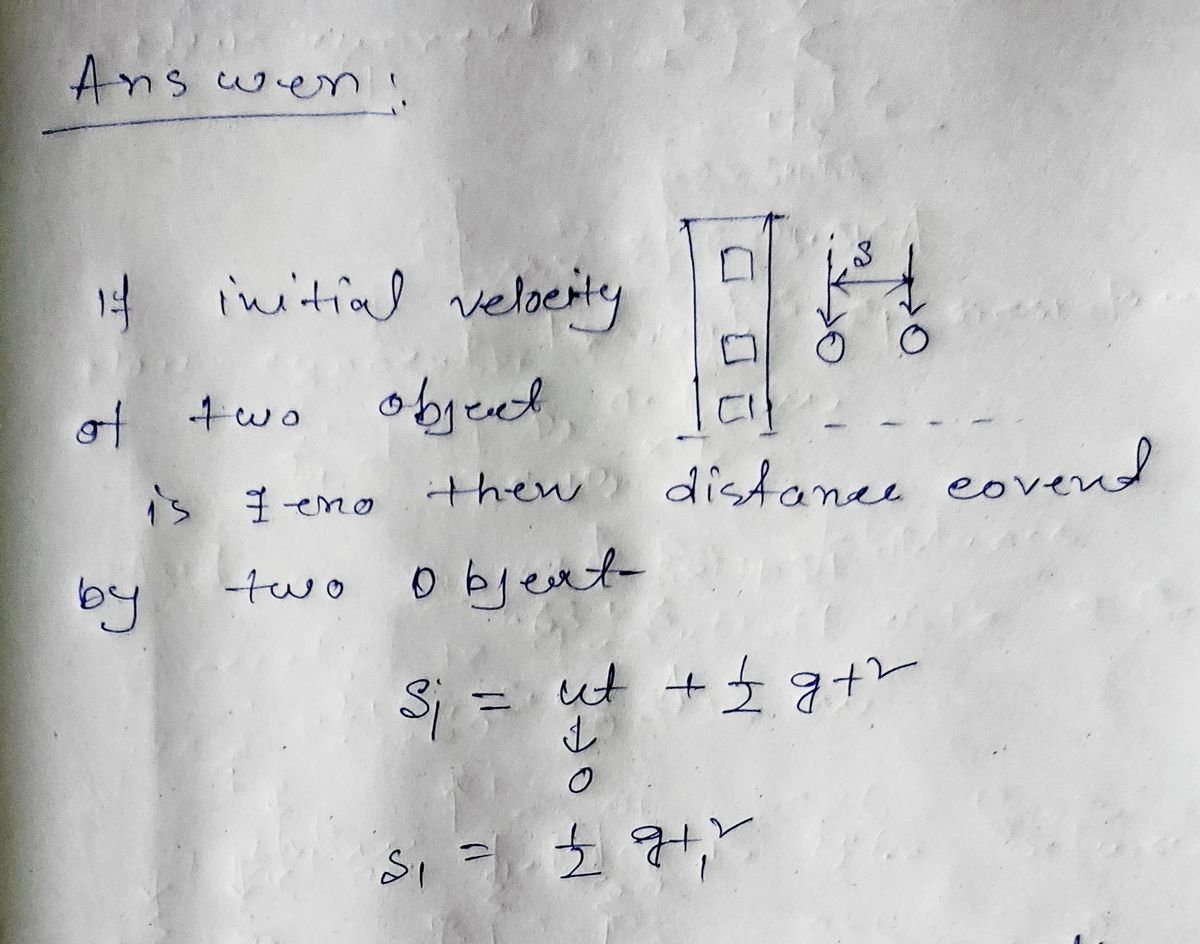 Answer:
S
If initial velocity
of two object
is zero then distance coverd
by two object
S₁ = ut + ½ gt²
↓
0
S₁ = ½ gt₁²